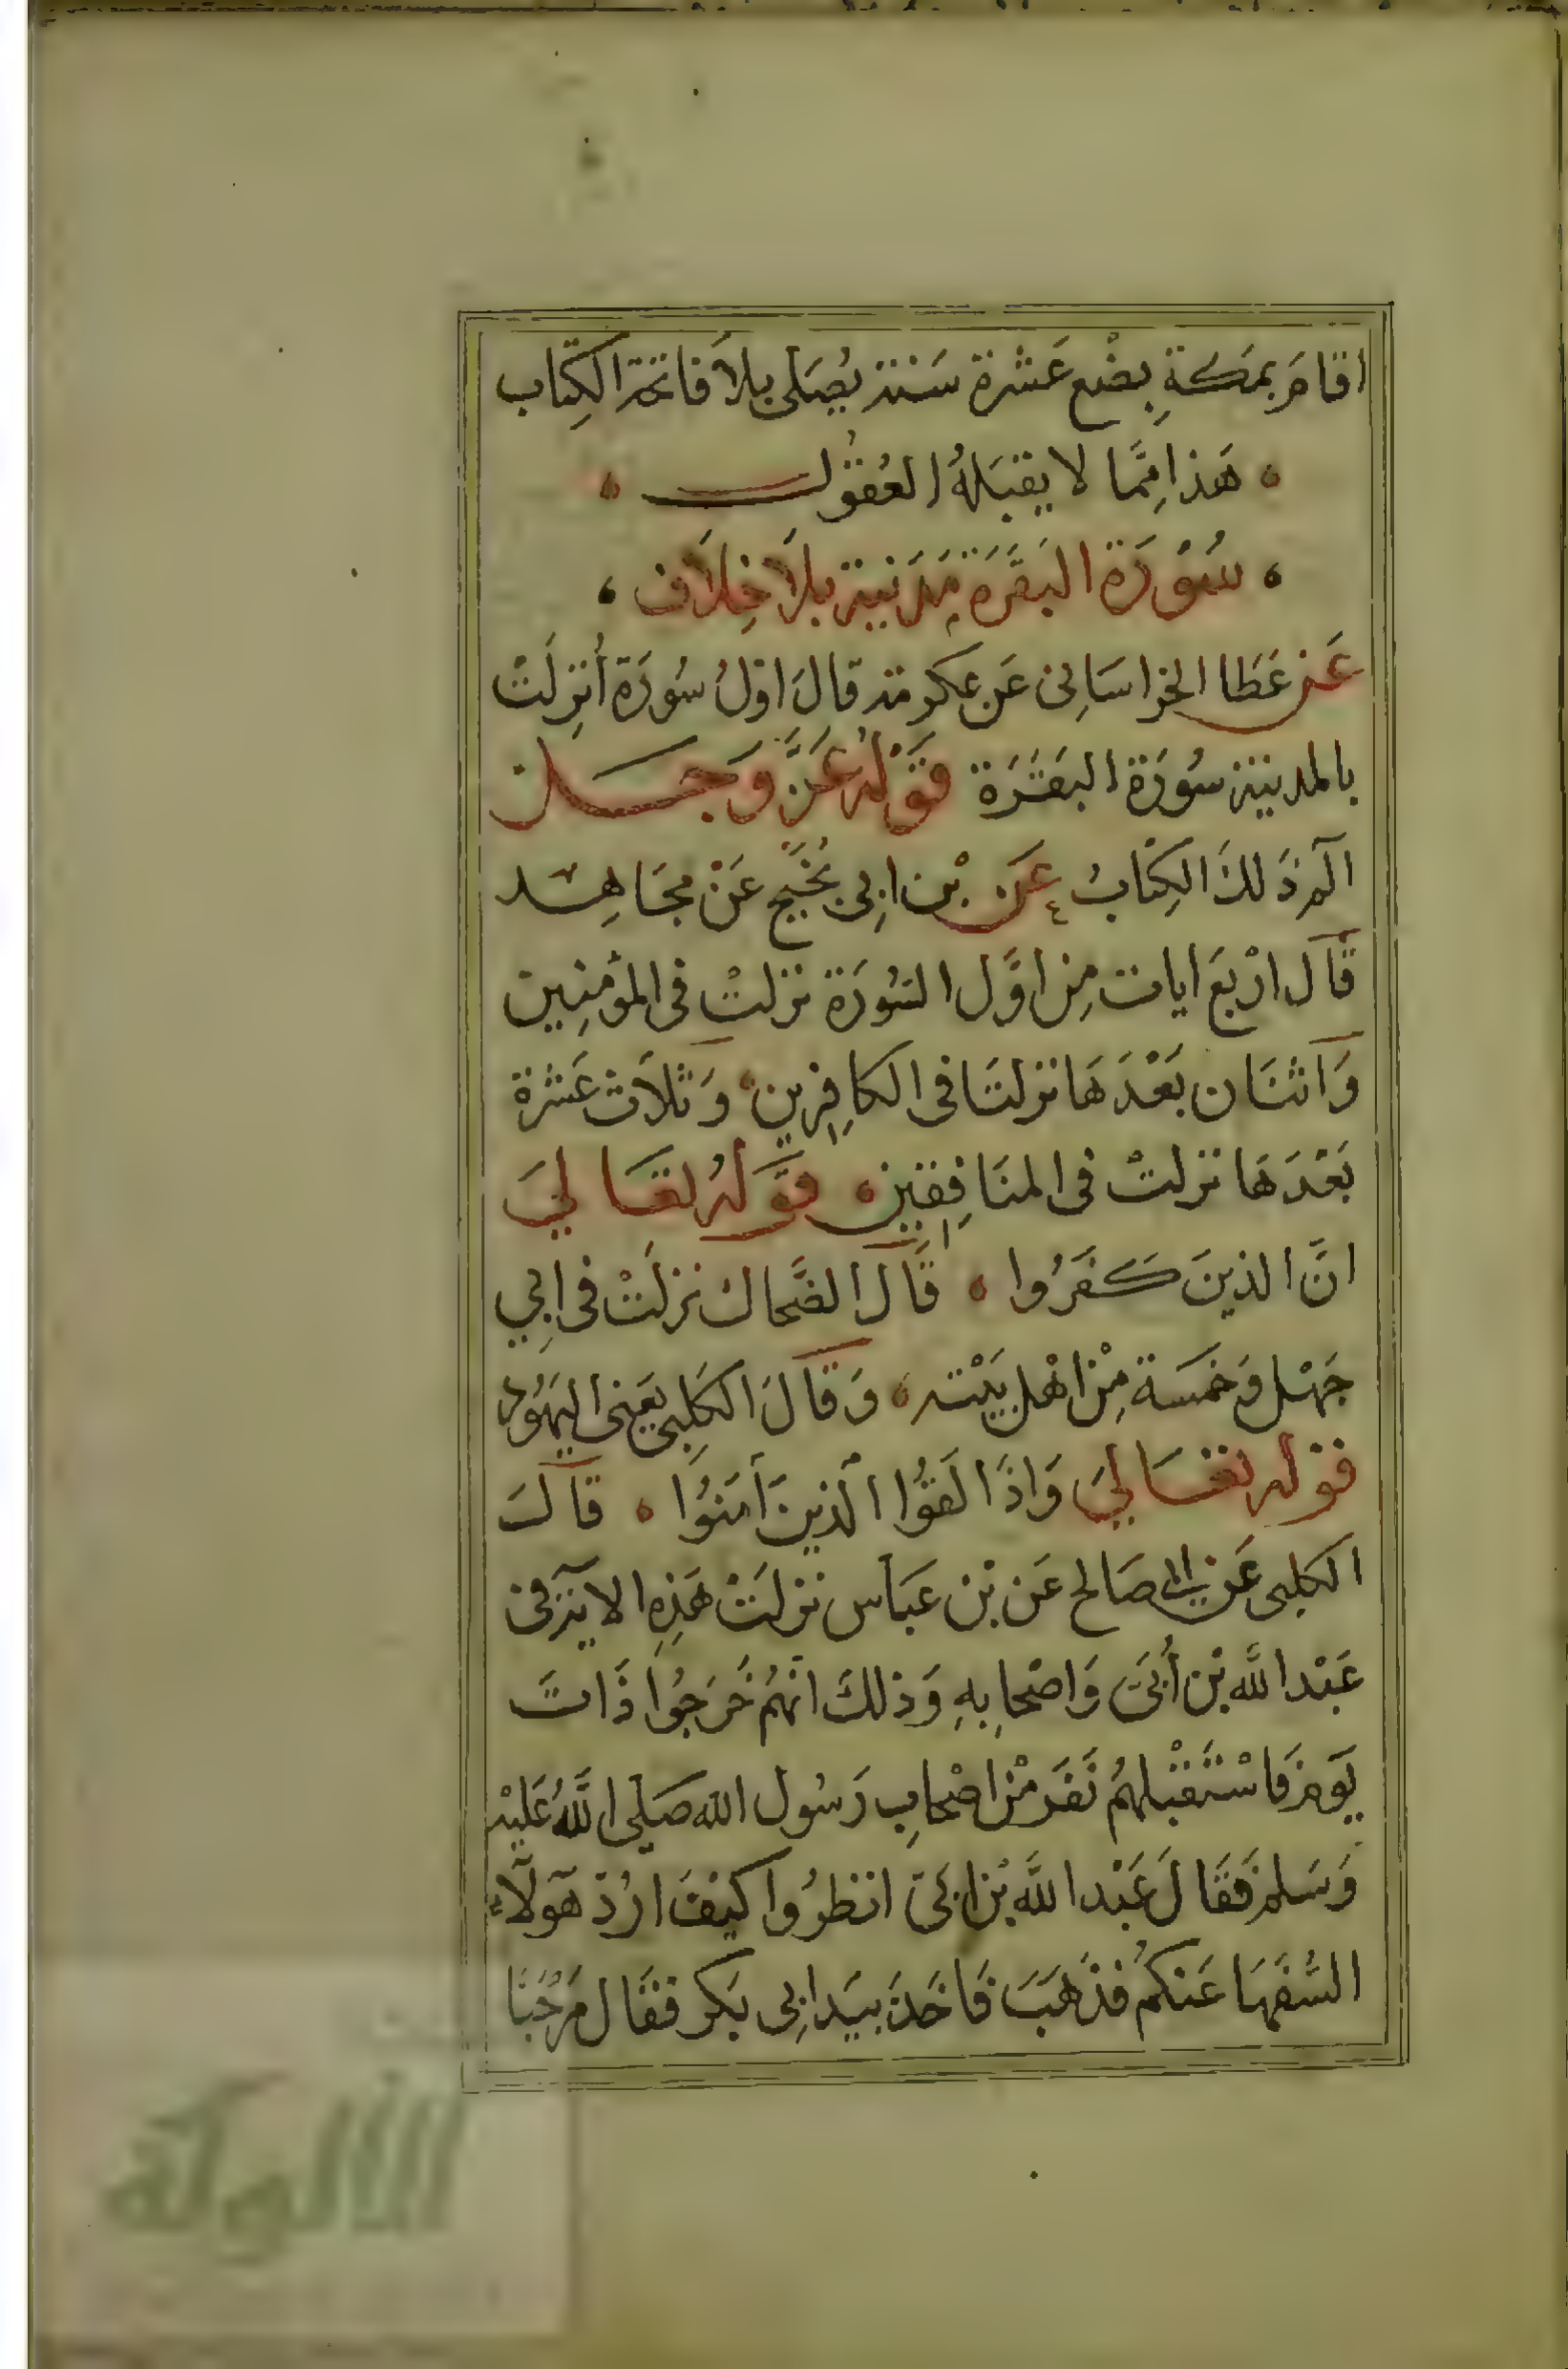 اقامَ بمَكَةِ بِضْع عَشْرة سَنة يُصَلى بلاَ فاتحة الكِتاب
هَذا مِمَّا لا يقبَلهُ العُقوُل
سُوُرَة البَقَرَة مَدَنية بِلاَ خِلاَف
عَن عَطَا الخراسَانِى عَن عِكرمة قالَ اوّلُ سُورَة أُنزِلَتْ
بالمدينة سُورَة البَقَرَة قَوْلهُ عَزَّ وَجَل
الٓم ذَلكَ الكِتَابُ عَن بْن ابِى نُجَيح عَنْ مجَاهِد
قالَ ارْبعَ ايات مِن اوَّل السُورَة نزلتْ فى المؤمِنِين
وَاثنَان بَعْدَهَا نزلتَا فى الكافِرِين وَثلاَث عَشْرة
بَعْدَهَا نزلتْ فى المنَافِقِين قَوْلهُ تعَالىَ
انَّ الذينَ كَفَرُوا قَالَ الضَّحاك نزلَتْ فى ابِي
جَهْل وَخمسَة مِنْ اهْل بَيْته وَقالَ الكَلِبى يَعنى اليَهُود
قوله تعَالىَ وَاذَا لَقوُا الذينَ اۤمَنوُا قالَ
الكلبى عَن ابى صَالح عَن بْن عَبَاس نزلَتْ هَذِهِ الاية فى
عَبْد الله بْن أُبَىّ وَاصْحابِهِ وَذلكَ انهُم خَرَجُوا ذَاتَ
يَوم فَاسْتَقْبلهُم نَفَر مْن اصْحابِ رَسُول الله صَلى اللهُ عَليْه
وَسَلم فَقَالَ عَبْد الله بْن ابَىّ انظرُوا كيْفَ ارُدّ هَؤلاَء
السُّفهَا عَنكمُ فذَهَبَ فَاخَذَ بيَد ابِى بَكر فقَال مَرحَبَا
الألوكة